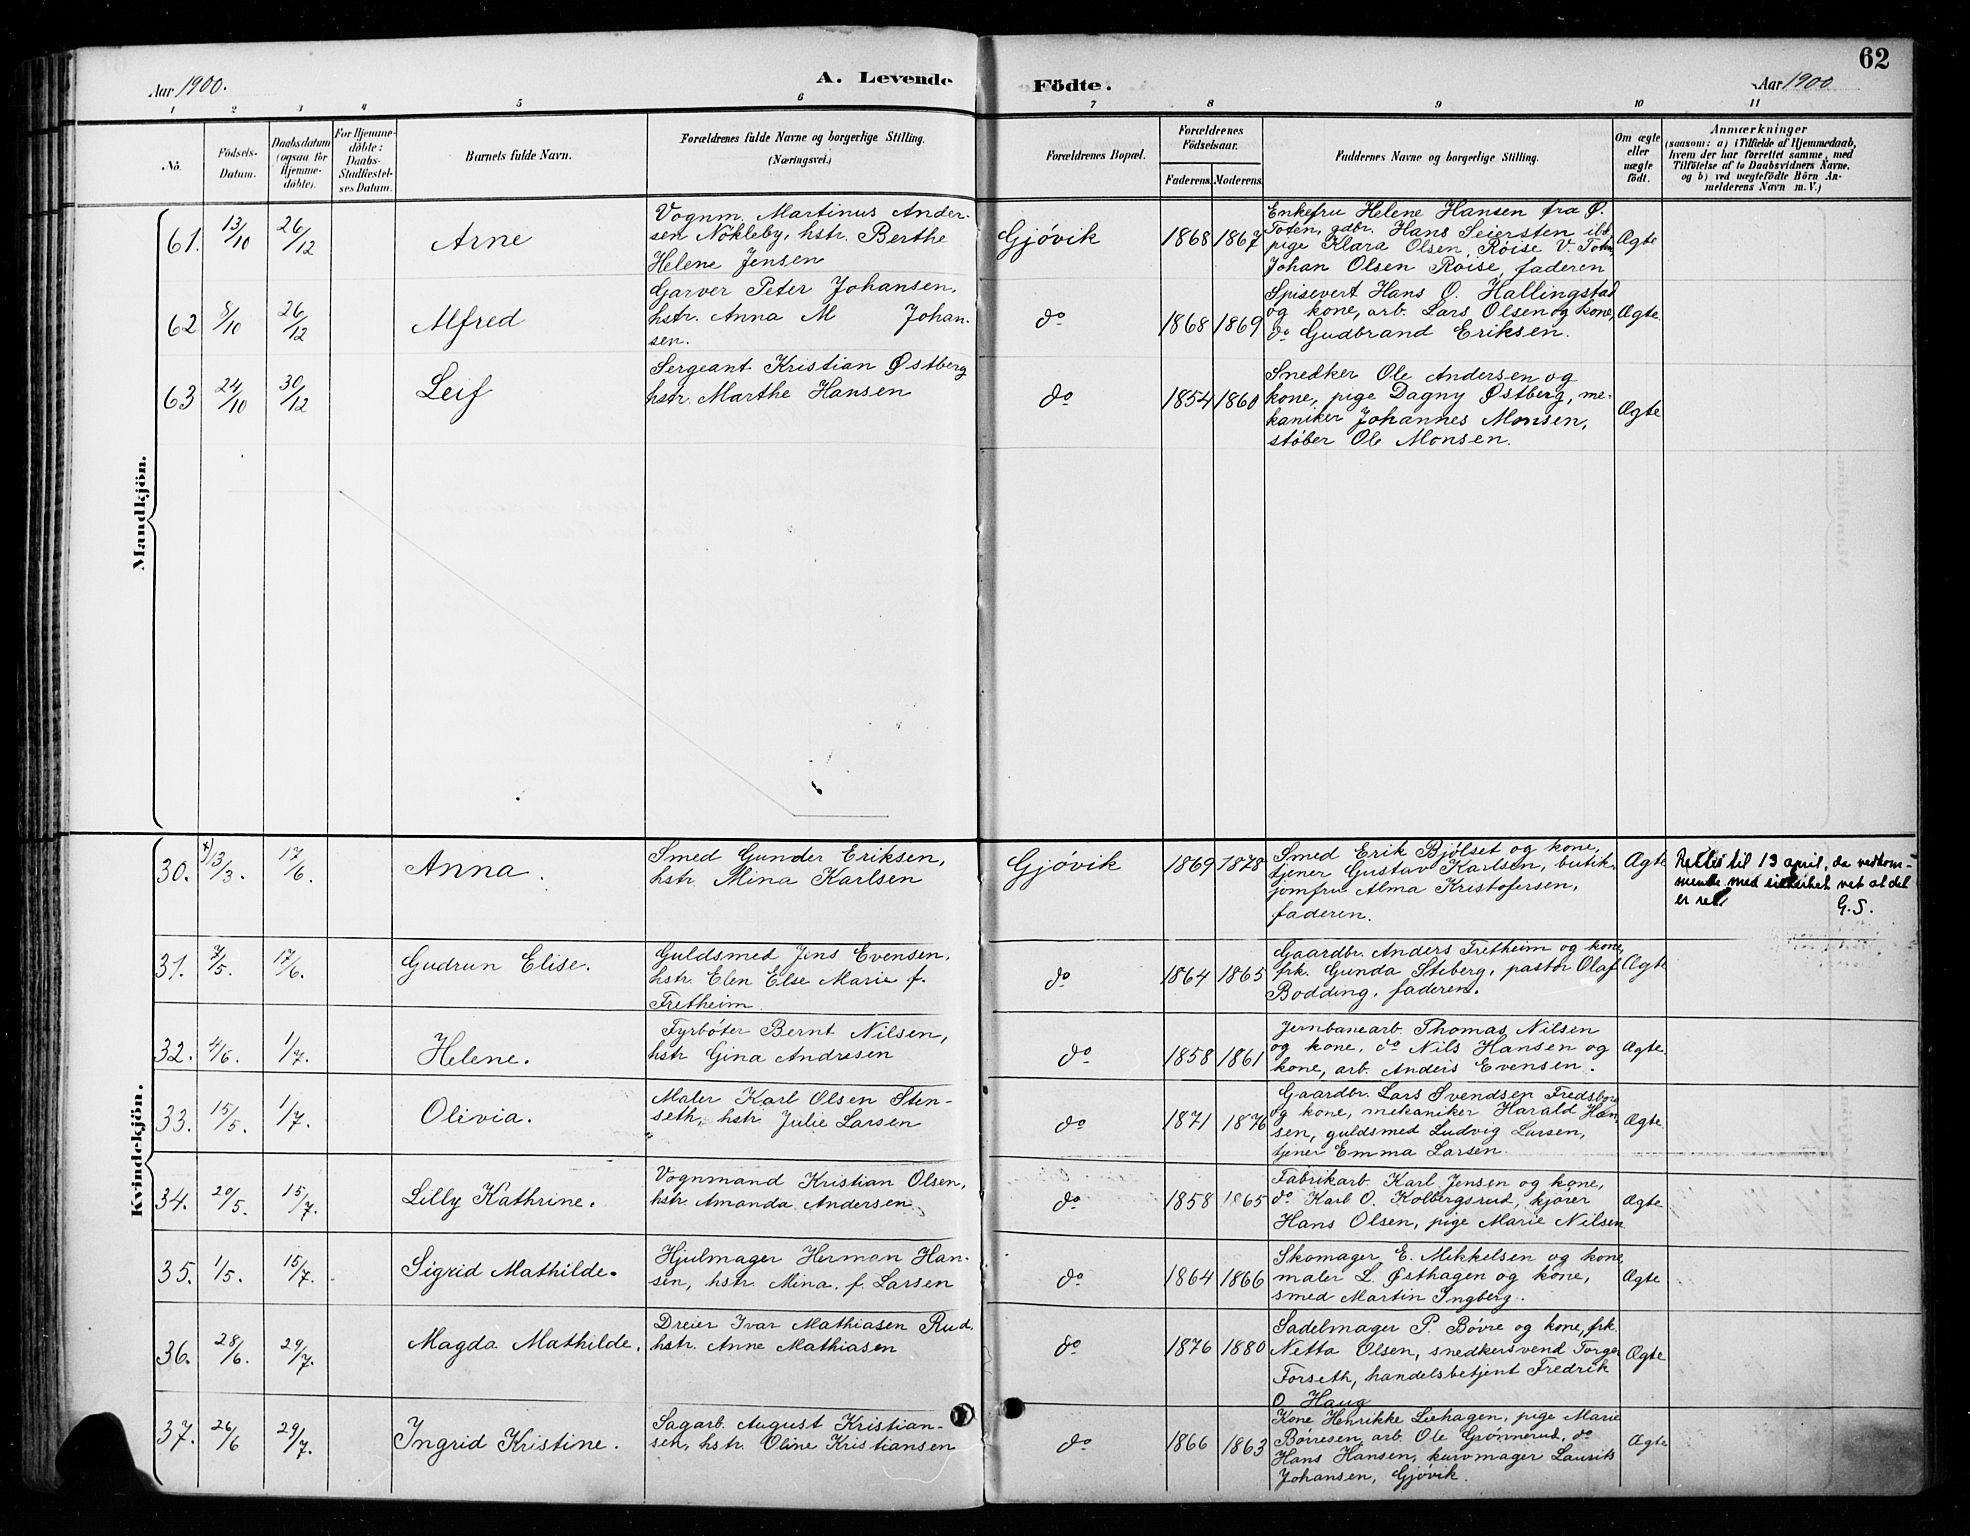 62
Aar 1900.
A. Levende
Födte.
Aar 1900
1 2 3 4 5 6 7 8 9 10 11
No.
Födsels-
Datum.
Daabsdatum
(ogsaa for
Hjemme-
döbte).
For Hjemme-
döbte:
Daabs-
Stadfæstel-
ses Datum.
Barnets fulde Navn.
Forældrenes fulde Navne og borgerlige Stilling.
(Næringsvei.)
Forældrenes Bopæl.
Forældrenes
Födselsaar.
Faderens. Moderens.
Faddernes Navne og borgerlige Stilling.
Om ægte
eller
uægte
födt.
Anmærkninger
(saasom: a) i Tilfælde af Hjemmedaab,
hvem der har forrettet samme, med
Tilföielse af to Daabsvidners Navne.
og b) ved uægtefödte Börn An-
melderens Navn m. V.)
Mandkjön.
61. 13/10 26/12 Arne
Vognm. Martinus Ander-
sen Nökleby, hstr. Berthe
Helene Jensen
Gjövik 1868 1867
Enkefru Helene Hansen fra Ø.
Toten, gdbr. Hans Seiersten ibd,
pige Klara Olsen Röise V. Toten,
Johan Olsen Röise, faderen
Ægte
62 8/10 26/12 Alfred
Garver Peter Johansen,
hstr. Anna M Johan-
sen.
do 1868 1869
Spisevert Hans O. Hallingstad
og kone, arb. Lars Olsen og kone,
do Gudbrand Eriksen.
Ægte.
63 24/10 30/12 Leif
Sergeant Kristian Østberg
hstr. Marthe Hansen
do 1854 1860
Snedker Ole Andersen og
kone, pige Dagny Østberg, me-
kaniker Johannes Monsen,
stöber Ole Monsen.
Ægte
Kvindekjön.
30. x) 13/3. 17/6. Anna.
Smed Gunder Eriksen,
hstr. Mina Karlsen
Gjövik 1869 1878
Smed Erik Bjölset og kone,
tjener Gustav Karlsen, butik-
jomfru Alma Kristofersen,
faderen.
Ægte
Rettes til 13 april, da vedkom-
mende med sikkerhet vet at det
er ret.
G.S.
31. 7/5. 17/6. Gudrun Elise.
Guldsmed Jens Evensen,
hstr. Elen Else Marie f.
Fretheim
do 1864 1865
Gaardbr. Anders Fretheim og kone,
frk. Gunda Stiberg, pastor Olaf
Bodding, faderen.
Ægte
32. 4/6. 1/7. Helene.
Fyrböter Bernt Nilsen,
hstr Gina Andresen
do 1858 1861
Jernbanearb. Thomas Nilsen
og kone, do Nils Hansen og
kone, arb. Anders Evensen.
Ægte.
33. 15/5. 1/7. Olivia.
Maler Karl Olsen Sten-
seth, hstr. Julie Larsen
do 1871 1876
Gaardbr. Lars Svendsen Fredsborg
og kone, mekaniker Harald Han-
sen, guldsmed Ludvig Larsen,
tjener Emma Larsen
Ægte.
34. 20/5. 15/7. Lilly Kathrine.
Vognmand Kristian Olsen,
hstr. Amanda Andersen
do 1858 1865
Fabrikarb. Karl Jensen og kone,
do Karl O. Kolbergsrud, kjörer
Hans Olsen, pige Marie Nilsen
Ægte
35. 1/5. 15/7. Sigrid Mathilde.
Hjulmager Herman Han-
sen, hstr. Mina f. Larsen
do 1864 1866
Skomager E. Mikkelsen og kone
maler L. Østhagen og kone,
smed Martin Ingberg.
Ægte
36. 28/6. 29/7. Magda Mathilde.
Dreier Ivar Mathiasen Rud.
hstr. Anne Mathiasen
do 1876 1880
Sadelmager P. Bövre og kone, frk.
Netta Olsen, snedkersvend Torger
Forseth, handelsbetjent Fredrik
O. Haug
Ægte
37. 26/6 29/7. Ingrid Kristine.
Sagarb. August Kristian-
sen, hstr. Oline Kristiansen
do 1866 1863
Kone Henrikke Liehagen, pige Marie
Börresen, arb. Ole Grönnerud, do
Hans Hansen, kurvmager Laurits
Johansen, Gjövik.
Ægte